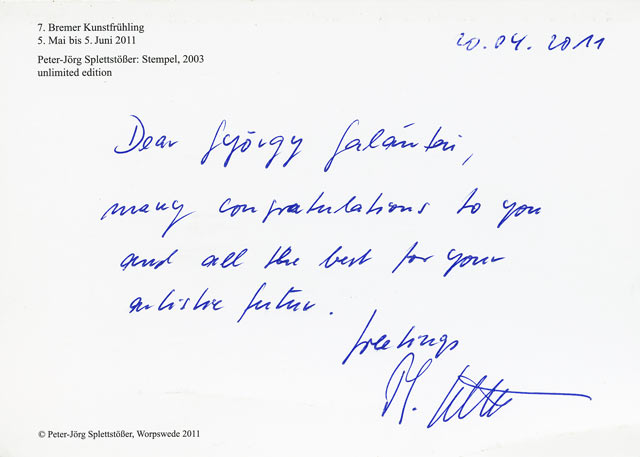 7. Bremer Kunstfrühling
5. Mai bis 5. Juni 2011
Peter-Jörg Splettstößer: Stempel, 2003
unlimited edition
20.04.2011
Dear György Galántai,
many congratulations to you
and all the best for your
artistic futur.
freetings
© Peter-Jörg Splettstößer, Worpswede 2011